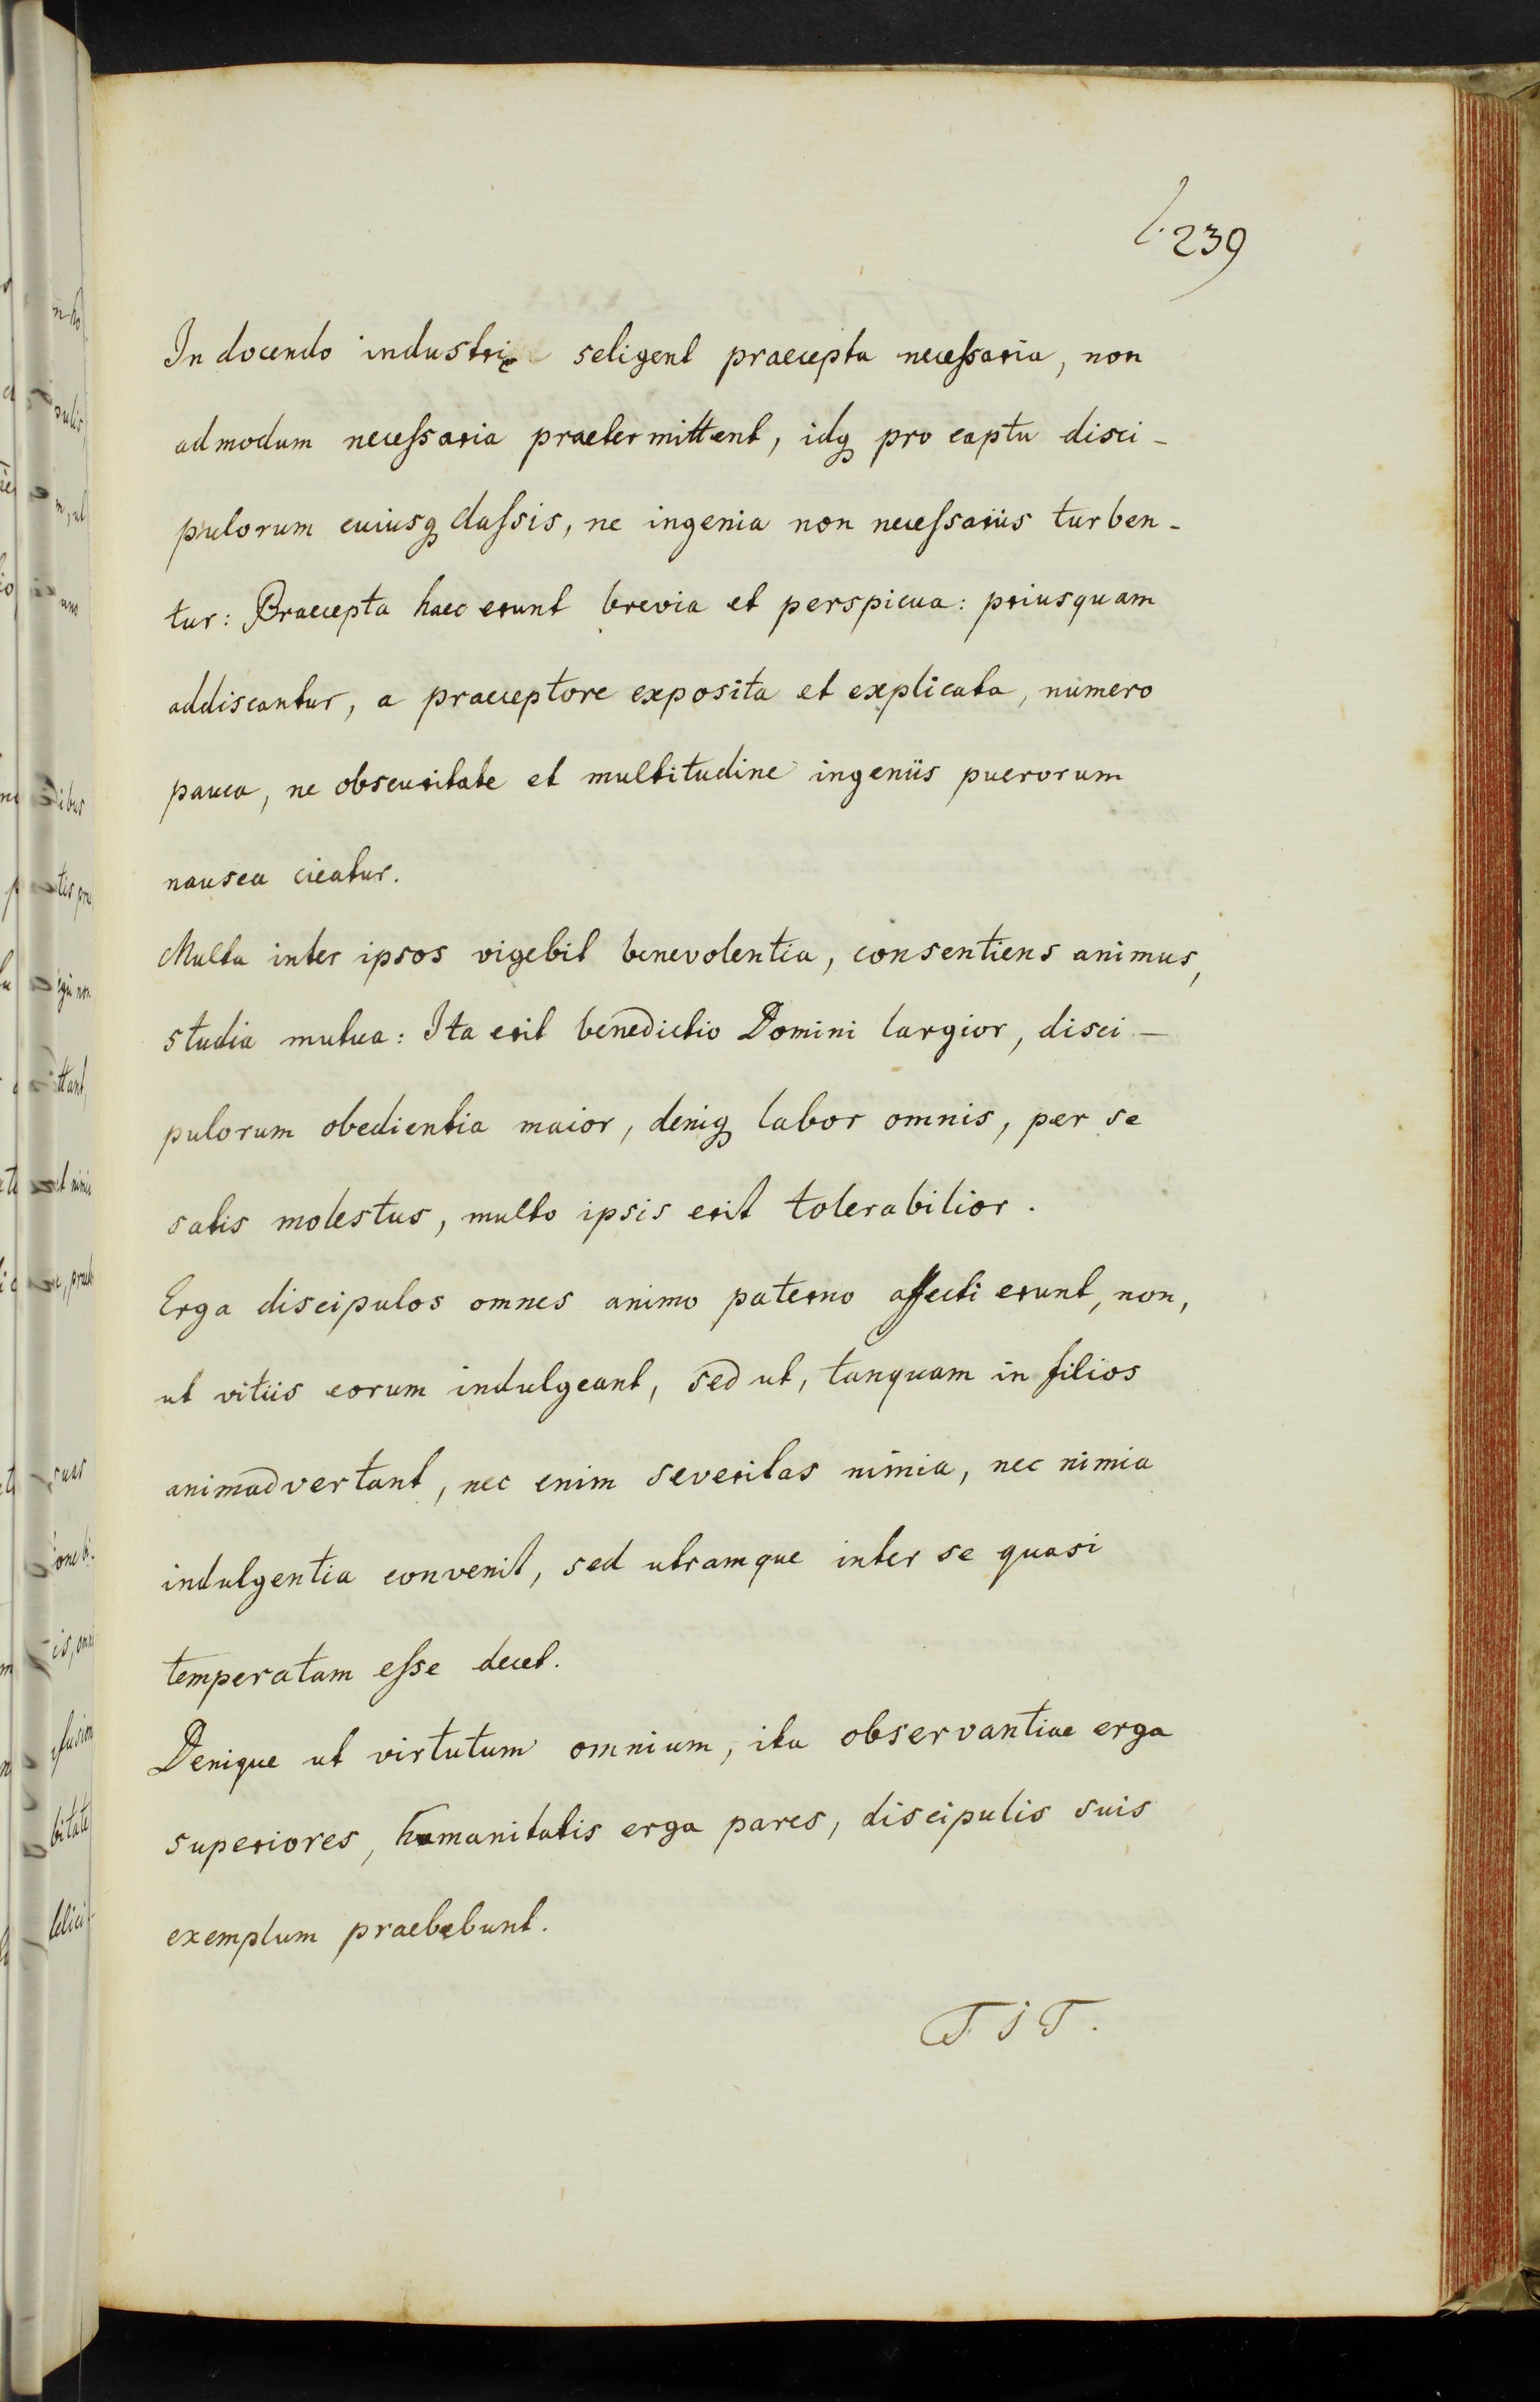 239
In docendo industrię seligent praecepta neceſsaria, non
admodum neceſsaria praetermittent, idꝗ pro captu disci-
pulorum cuiusꝗ claſsis, ne ingenia non neceſsariis turben-
tur: Praecepta haec erunt brevia et perspicua: priusquam
addiscantur, a praeceptore exposita et explicata, numero
pauca, ne obscuritate et multitudine ingeniis puerorum
nausea cieatur.
Multa inter ipsos vigebit benevolentia, consentiens animus,
studia mutua: Ita erit benedictio Domini largior, disci-
pulorum obedientia maior, deniꝗ labor omnis, per se
satis molestus, multo ipsis erit tolerabilior.
Erga discipulos omnes animo paterno affecti erunt, non,
ut vitiis eorum indulgeant, sed ut, tanquam in filios
animadvertant, nec enim severitas nimia, nec nimia
indulgentia convenit, sed utramque inter se quasi
temperatam eſse decet.
Denique ut virtutum omnium, ita observantiae erga
superiores, humanitatis erga pares, discipulis suis
exemplum praebebunt.
TIT.